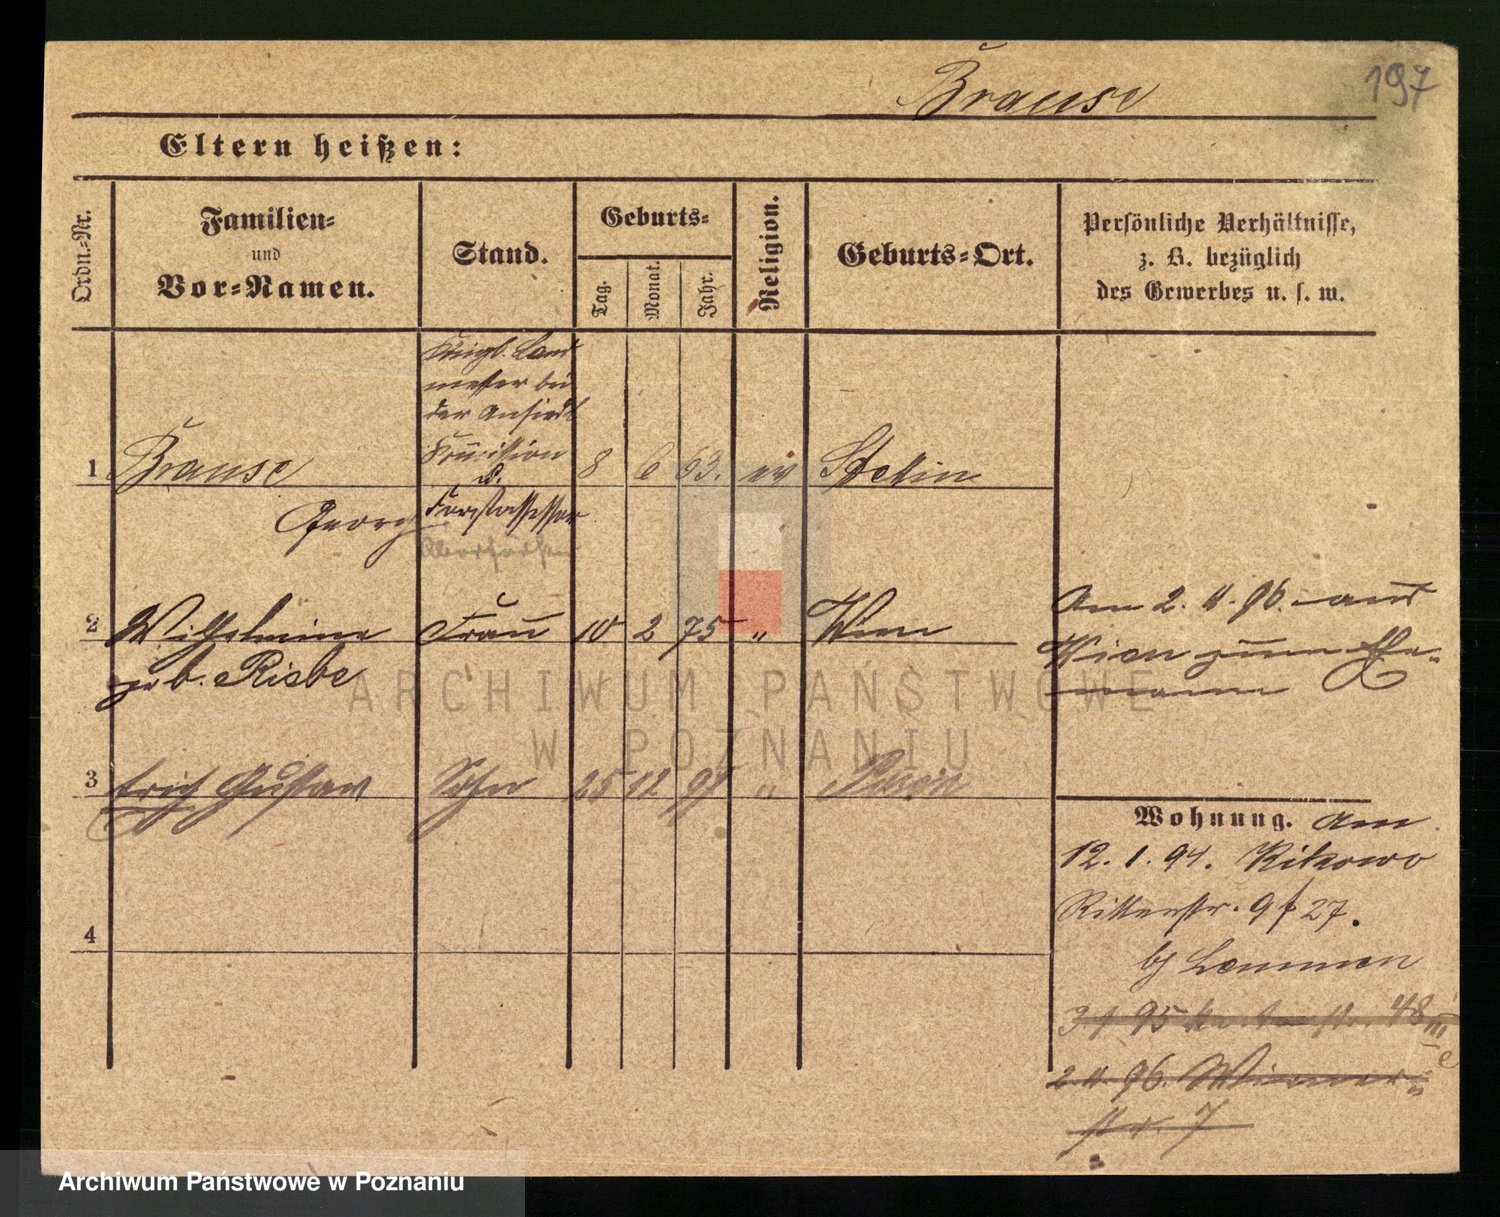 Brause
197
Eltern heißen:
Ordn.-Nr.
Familien-
und
Vor-Namen.
Stand.
Geburts-
Tag.
Monat.
Jahr.
Religion.
Geburts-Ort.
Persönliche Verhältnisse,
z. B. bezüglich
des Gewerbes u. s. w.
Königl. Land
messer bei
der Ansiedl
Commission
1 Brause 8 6 63. ev Stettin
u.
Georg Forstassessor
2 Wilhelmine Frau 10 2 75 " Wien
geb. Riebe
Am 2. 4. 96. aus
Wien zum Ehe-
mann
3 Erich Gustav Sohn 25 12 97 "
Wohnung. Am
12. 1. 94. Kikowo
Ritterstr. 9 f 27.
bj Lemmen
4
95 48 III
2. 4. 96. Wiener
str. 7
ARCHIWUM PAŃSTWOWE
W POZNANIU
Archiwum Państwowe w Poznaniu